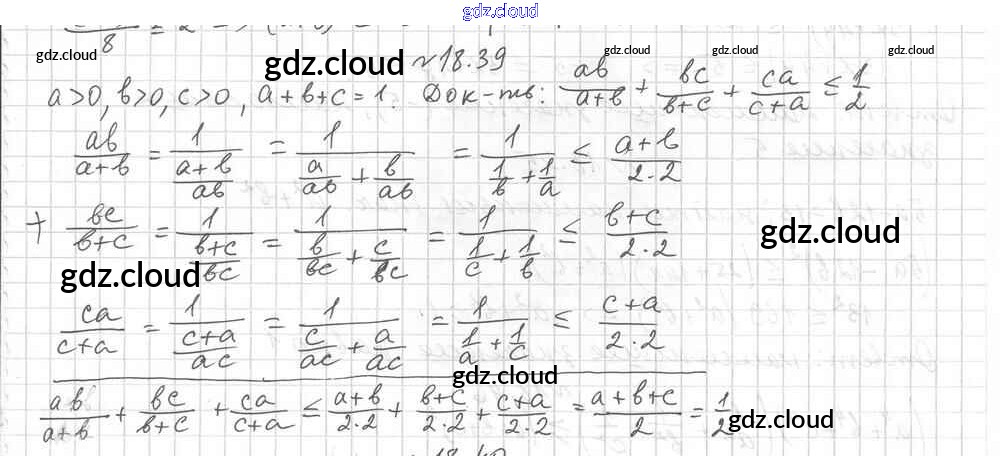 gdz.cloud
8
gdz.cloud gdz.cloud №18.39 gdz.cloud gdz.cloud
a>0, b>0, c>0, a+b+c=1. Док-ть: ab/(a+b) + bc/(b+c) + ca/(c+a) ≤ 1/2
ab/(a+b) = 1/((a+b)/ab) = 1/(a/ab + b/ab) = 1/(1/b + 1/a) ≤ (a+b)/(2·2)
+ bc/(b+c) = 1/((b+c)/bc) = 1/(b/bc + c/bc) = 1/(1/c + 1/b) ≤ (b+c)/(2·2)
gdz.cloud gdz.cloud
ca/(c+a) = 1/((c+a)/ac) = 1/(c/ac + a/ac) = 1/(1/a + 1/c) ≤ (c+a)/(2·2)
gdz.cloud
ab/(a+b) + bc/(b+c) + ca/(c+a) ≤ (a+b)/(2·2) + (b+c)/(2·2) + (c+a)/(2·2) = (a+b+c)/2 = 1/2
gdz.cloud